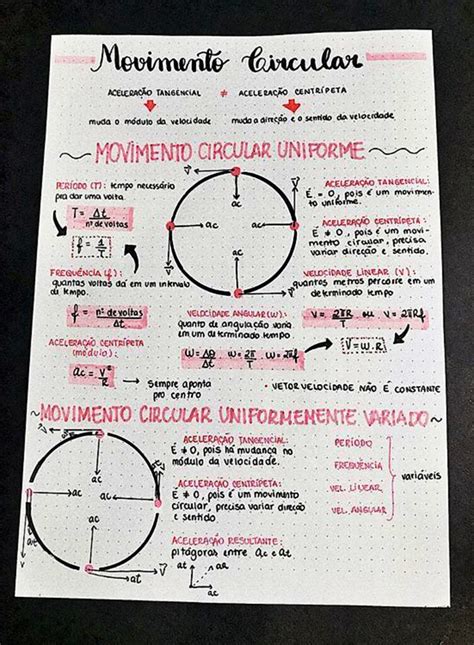 Movimento Circular
ACELERAÇÃO TANGENCIAL ≠ ACELERAÇÃO CENTRÍPETA
muda o módulo da velocidade
muda a direção e o sentido da velocidade
~ MOVIMENTO CIRCULAR UNIFORME ~
PERÍODO (T): tempo necessário
pra dar uma volta.
T = Δt / nº de voltas
f = 1/T
FREQUÊNCIA (f):
quantas voltas dá em um intervalo
de tempo.
f = nº de voltas / Δt
ACELERAÇÃO CENTRÍPETA
(módulo):
ac = v² / R
Sempre aponta
pro centro
v
ac
ac
ac
ac
v
v
v
ACELERAÇÃO TANGENCIAL:
É = 0, pois é um movimen-
to uniforme.
ACELERAÇÃO CENTRÍPETA:
É ≠ 0, pois é um movi-
mento circular, precisa
variar direção e sentido.
VELOCIDADE LINEAR (V):
quantos metros percorre em um
determinado tempo
V = 2πR / T ou V = 2πRf
V = W.R
VELOCIDADE ANGULAR (W):
quanto de angulação varia
em um determinado tempo.
W = Δθ / Δt W = 2π / T W = 2πf
• VETOR VELOCIDADE NÃO É CONSTANTE
~MOVIMENTO CIRCULAR UNIFORMEMENTE VARIADO~
ac
ac
ac
ac
at
at
v
v
ACELERAÇÃO TANGENCIAL:
É ≠ 0, pois há mudança no
módulo da velocidade.
ACELERAÇÃO CENTRÍPETA:
É ≠ 0, pois é um movimento
circular, precisa variar direção
e sentido
ACELERAÇÃO RESULTANTE:
pitágoras entre ac e at
at
aR
ac
PERÍODO
FREQUÊNCIA
VEL. LINEAR
VEL. ANGULAR
variáveis